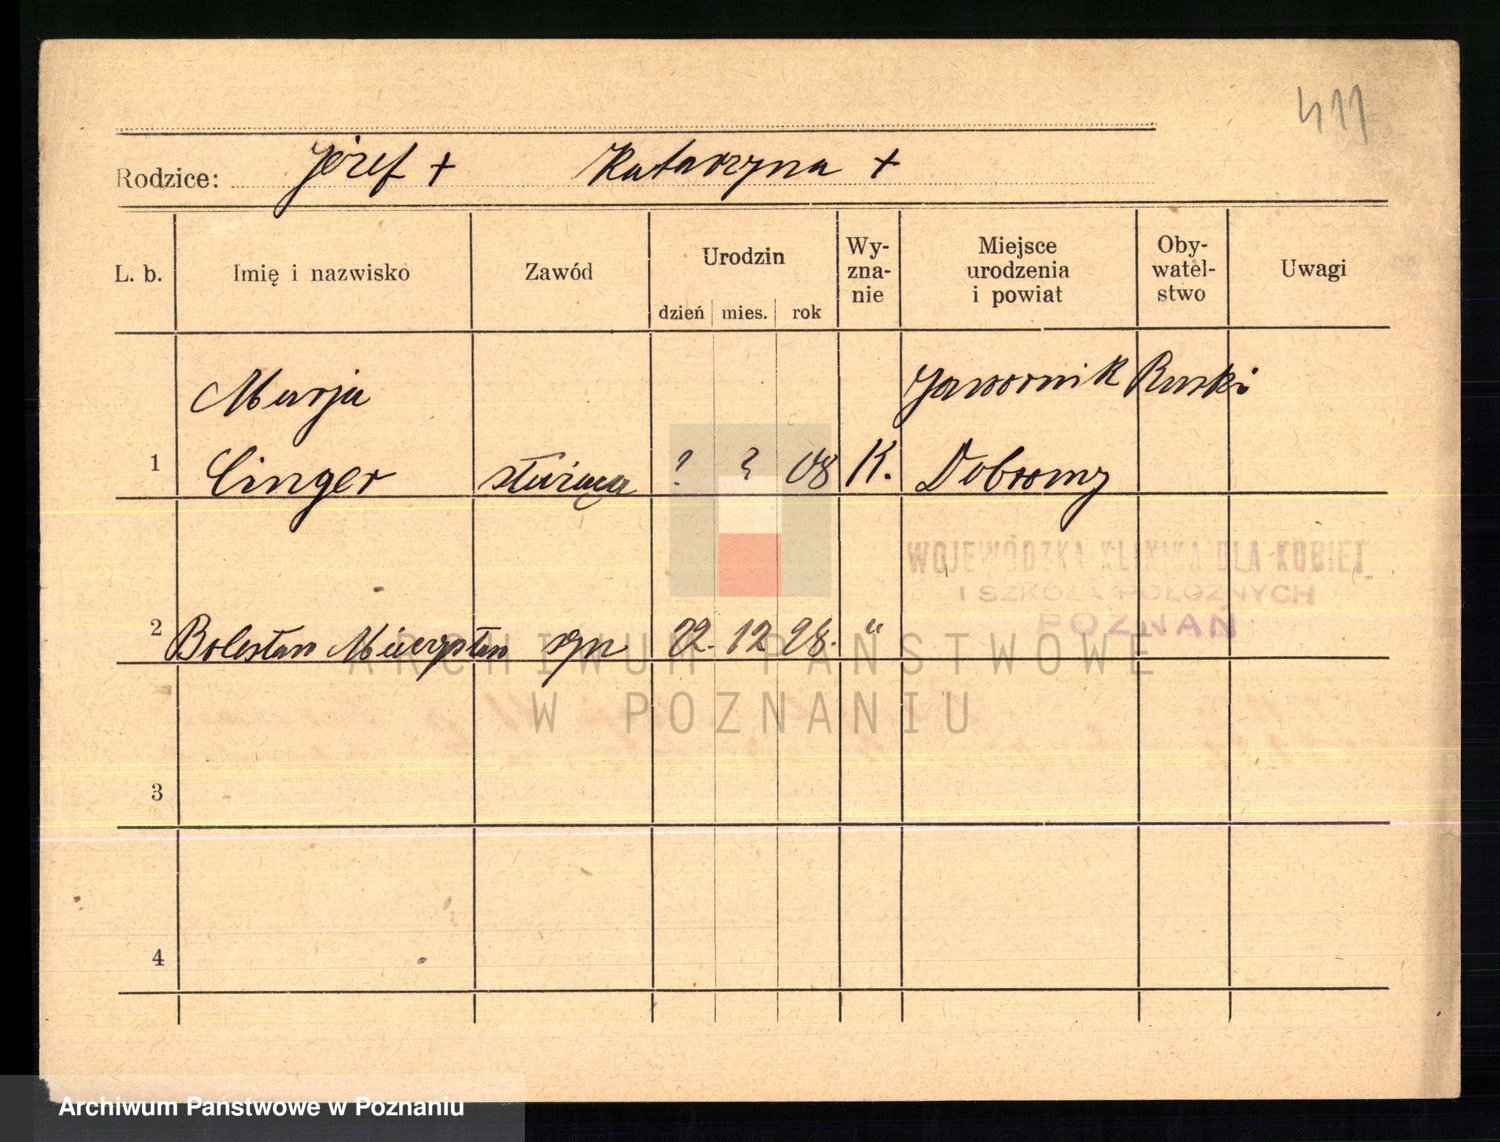 411
Rodzice: Józef + Katarzyna +
L. b. Imię i nazwisko Zawód Urodzin Wy-zna-nie Miejsce urodzenia i powiat Oby-watel-stwo Uwagi
dzień mies. rok
Marja Jawornik Ruski
1 Cinger służąca ? ? 08 K. Dobromy
WOJEWÓDZKA KLINIKA DLA KOBIET
I SZKOŁA POŁOŻNYCH
POZNAŃ
2 Bolesław Mieczysław syn 22. 12 28. "
ARCHIWUM PAŃSTWOWE
W POZNANIU
3
4
Archiwum Państwowe w Poznaniu